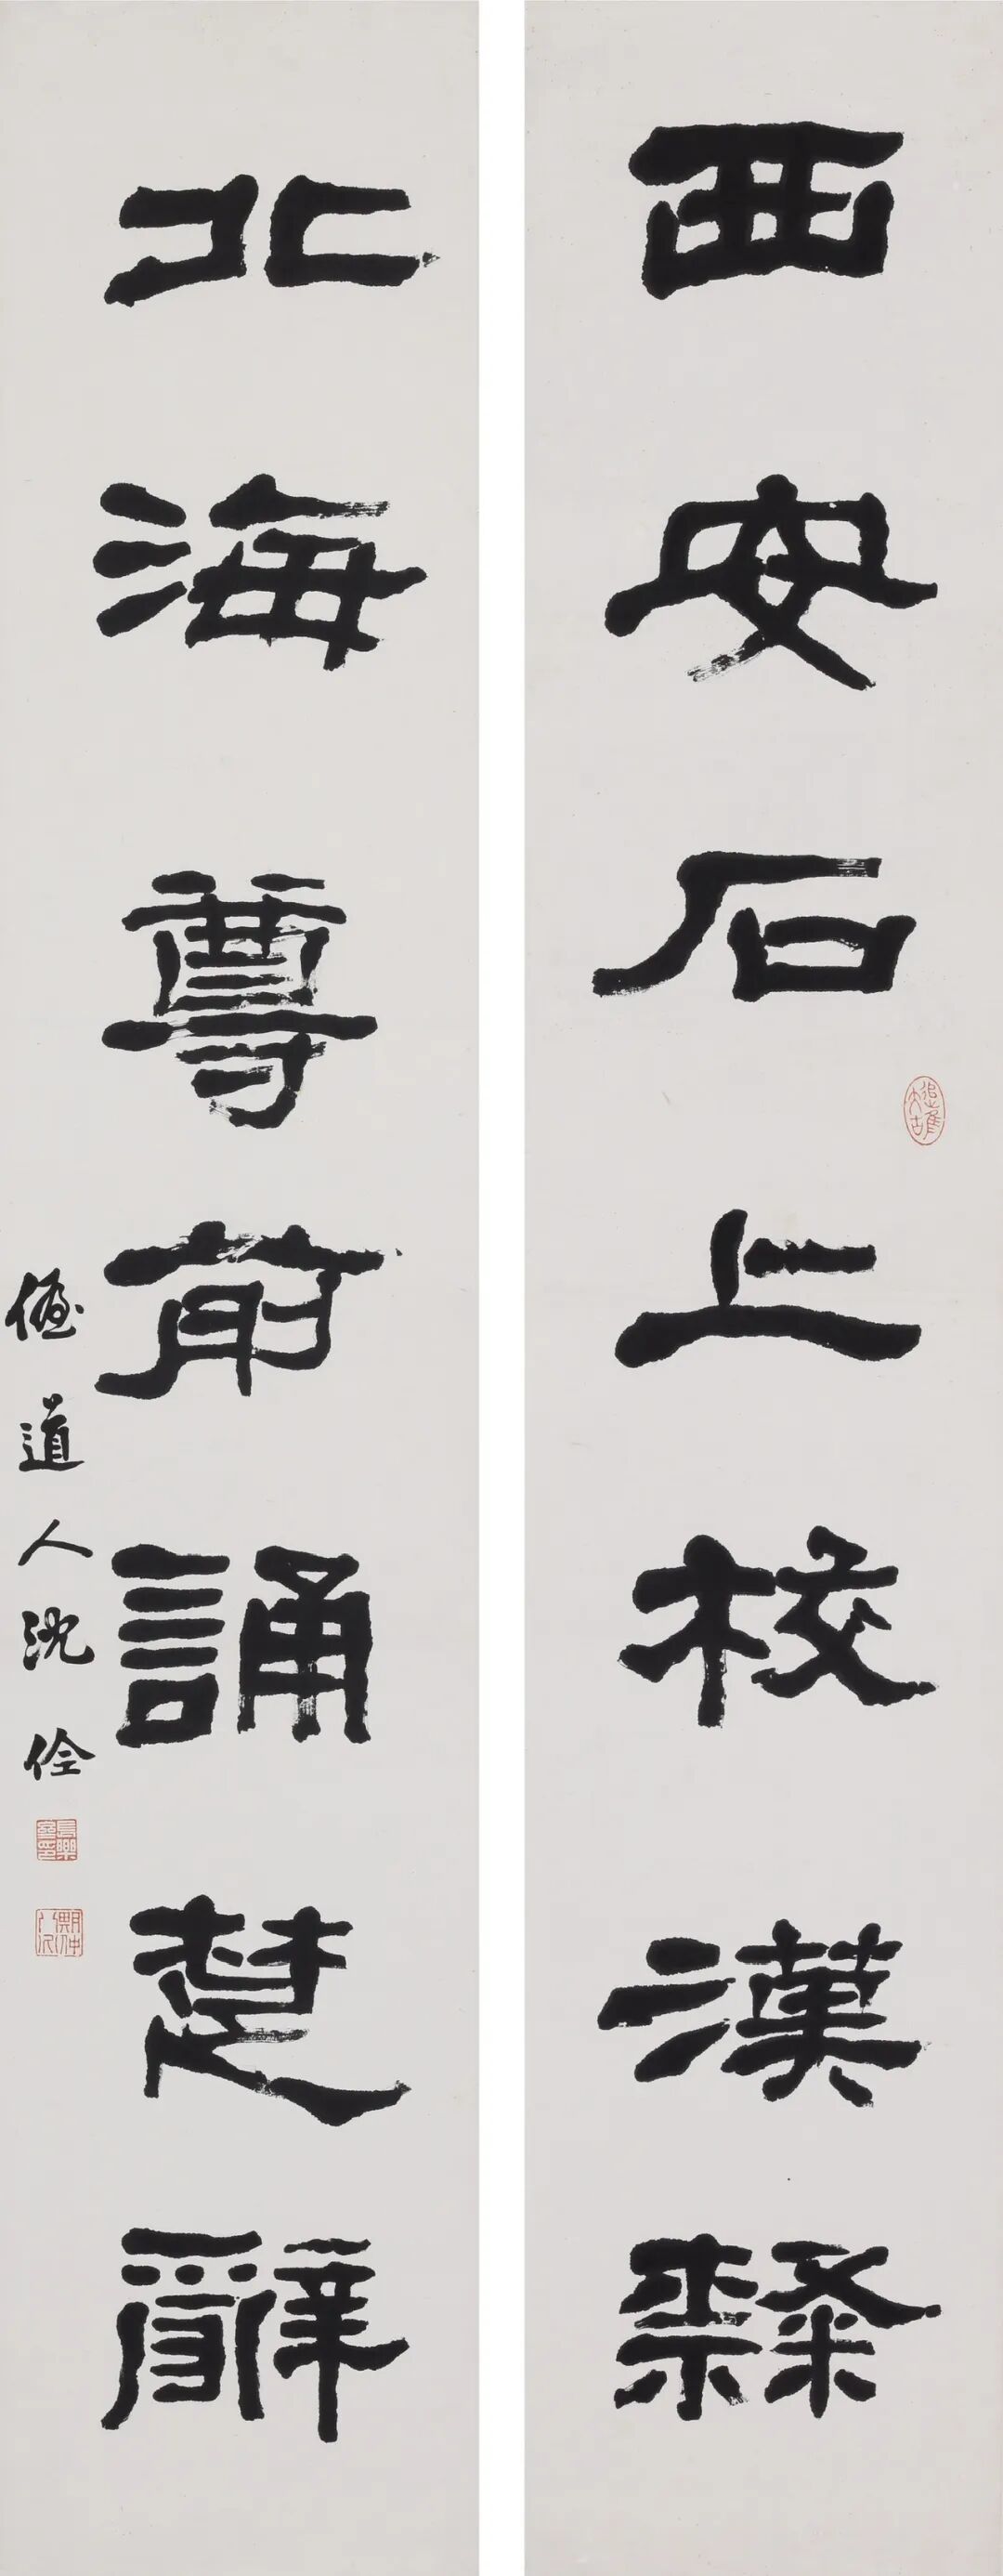 西安石上校漢隸
北海尊前誦楚辭
道人沈佺